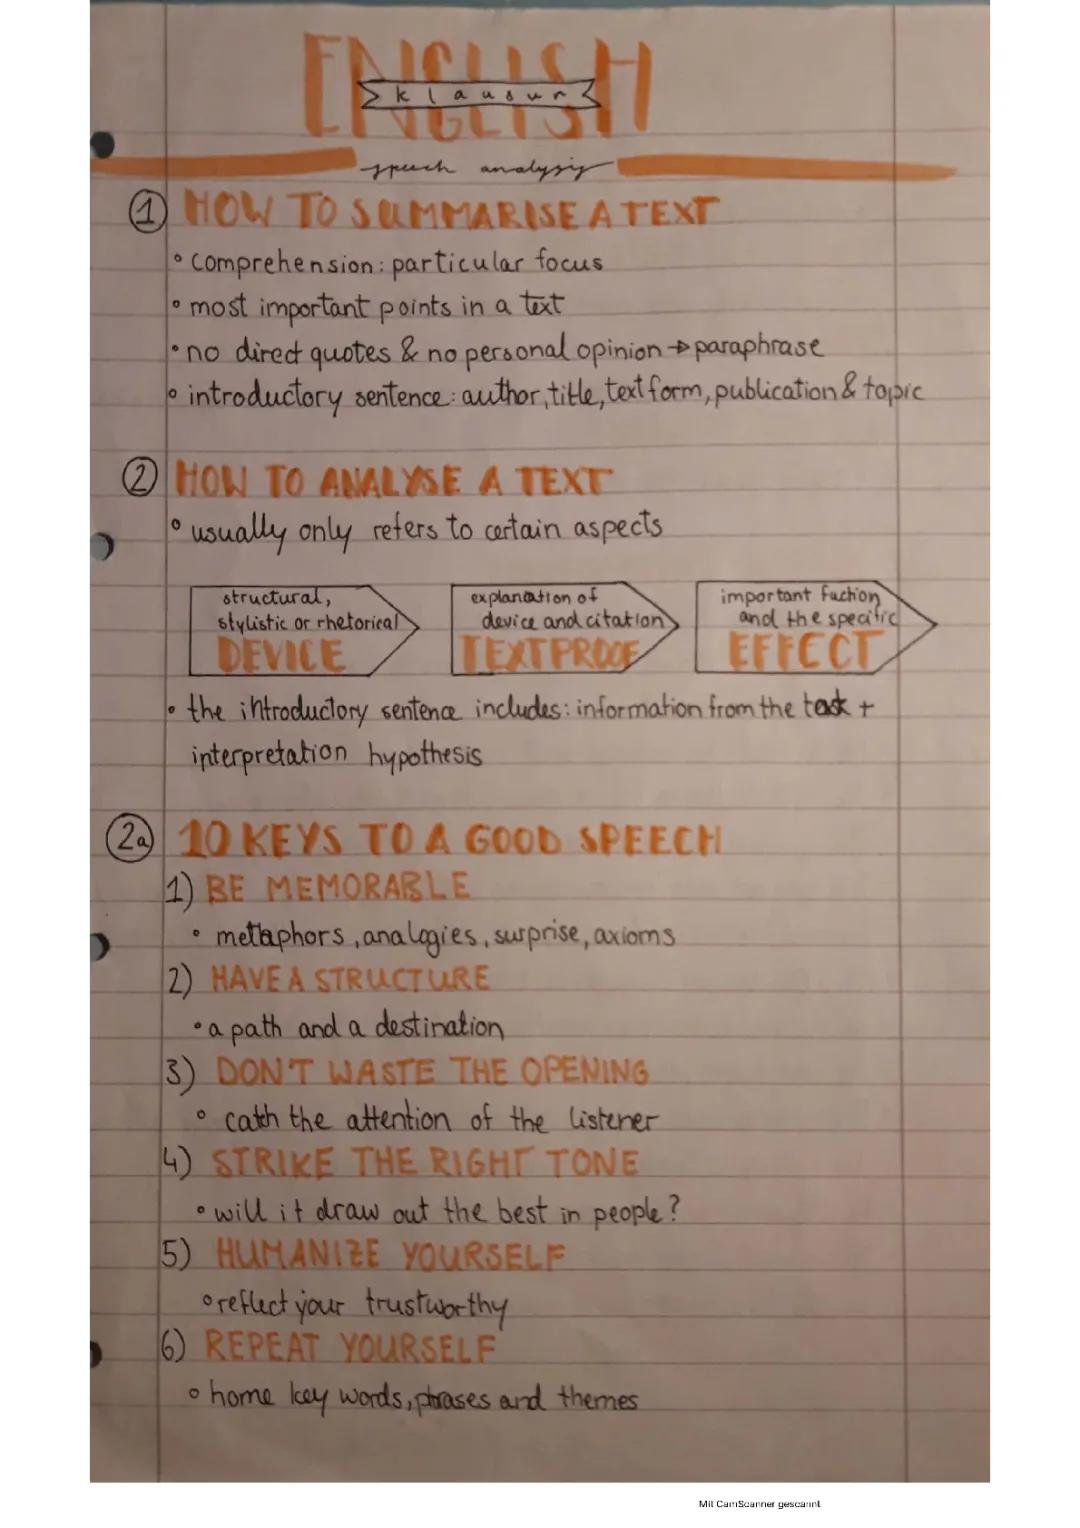 ENGLISH
klausur
speech analysis
1 HOW TO SUMMARISE A TEXT
• comprehension: particular focus
• most important points in a text
• no direct quotes & no personal opinion → paraphrase
• introductory sentence: author, title, text form, publication & topic
2 HOW TO ANALYSE A TEXT
• usually only refers to certain aspects
structural,
stylistic or rhetorical
DEVICE
explanation of
device and citation
TEXTPROOF
important fuction
and the specific
EFFECT
• the introductory sentence includes: information from the task +
interpretation hypothesis
2a 10 KEYS TO A GOOD SPEECH
1) BE MEMORABLE
• metaphors, analogies, surprise, axioms
2) HAVE A STRUCTURE
• a path and a destination
3) DON'T WASTE THE OPENING
• catch the attention of the listener
4) STRIKE THE RIGHT TONE
• will it draw out the best in people?
5) HUMANIZE YOURSELF
• reflect your trustworthy
6) REPEAT YOURSELF
• home key words, phrases and themes
Mit CamScanner gescannt